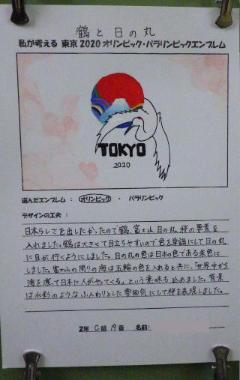 鶴と日の丸
私が考える 東京2020オリンピック・パラリンピックエンブレム
TOKYO
2020
選んだエンブレム : オリンピック ・ パラリンピック
デザインの工夫 :
日本らしさを出したかったので鶴、富士山、日の丸、桜の要素を
入れました。鶴は大きくて目立ちやすいので色を単調にして日の丸
に目が行くようにしました。日の丸の色は日本の色である朱色に
しました。富士山の周りの海は五輪の色を入れると共に、"世界中から
海を渡って日本に人がやってくる"という意味も込めました。背景
は水彩のようなふんわりとした雰囲気にして桜を表現しました。
2年 C組 19番 名前: